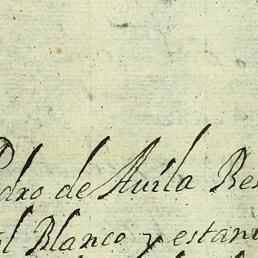 Pedro de Auila Res
el Blanco y estan